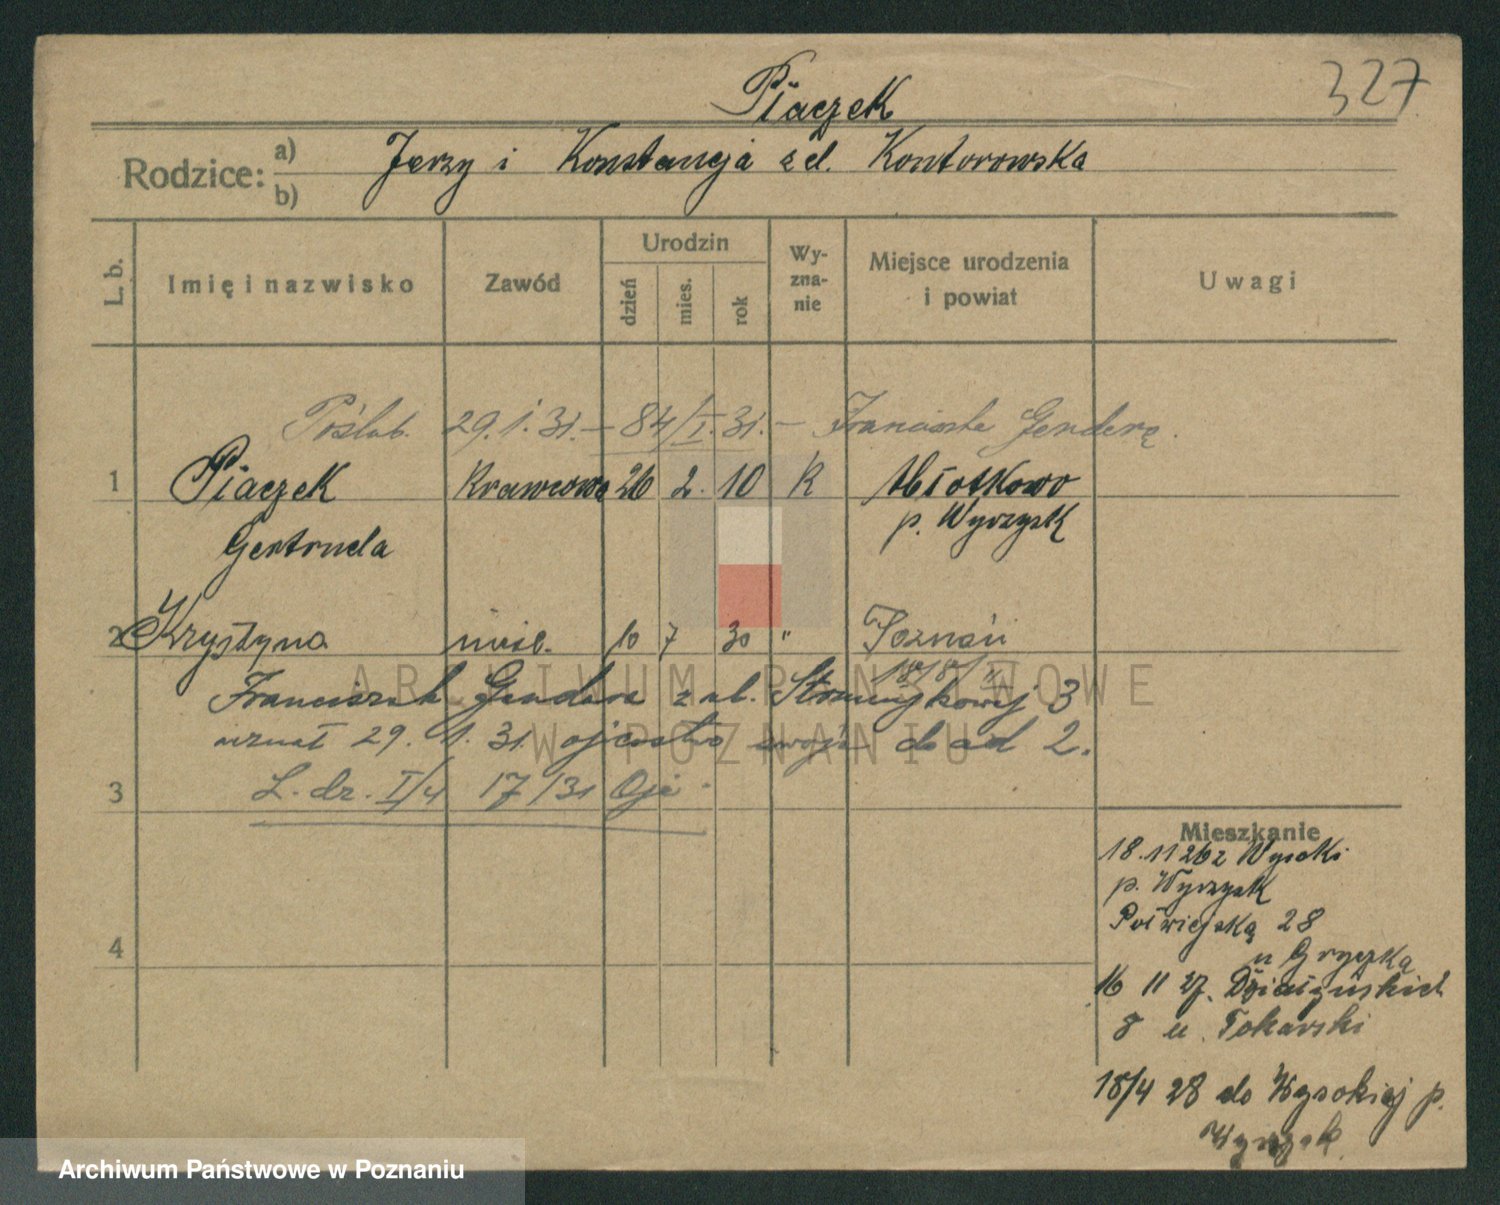 327
Piaczek
Rodzice: a) b) Jerzy i Konstancja z d. Kontorowska
L. b. Imię i nazwisko Zawód Urodzin dzień mies. rok Wy-zna-nie Miejsce urodzenia i powiat Uwagi
Poślub. 29.1.31. – 84/I.31. – Franciszka Genderę.
1 Piaczek Krawcowa 26 2. 10 R Młotkowo
Gertruda p. Wyrzysk
2 Krystyna nieśl. 10 7 30 " Poznań
18/8/
Franciszek Gendera z ul. Strumykowej 3
uznał 29. 1. 31 ojcostwo swoje do ad 2.
3 L. dz. I/4 17/31 Ojc.
4
Mieszkanie
18.11 26 z Wysoki
p. Wyrzysk
Półwiejska 28
u Gryczka
16 11 27. Działyńskich
8 u. Tokarski
18/4 28 do Wysokiej p.
Wyrzysk.
ARCHIWUM PAŃSTWOWE
W POZNANIU
Archiwum Państwowe w Poznaniu